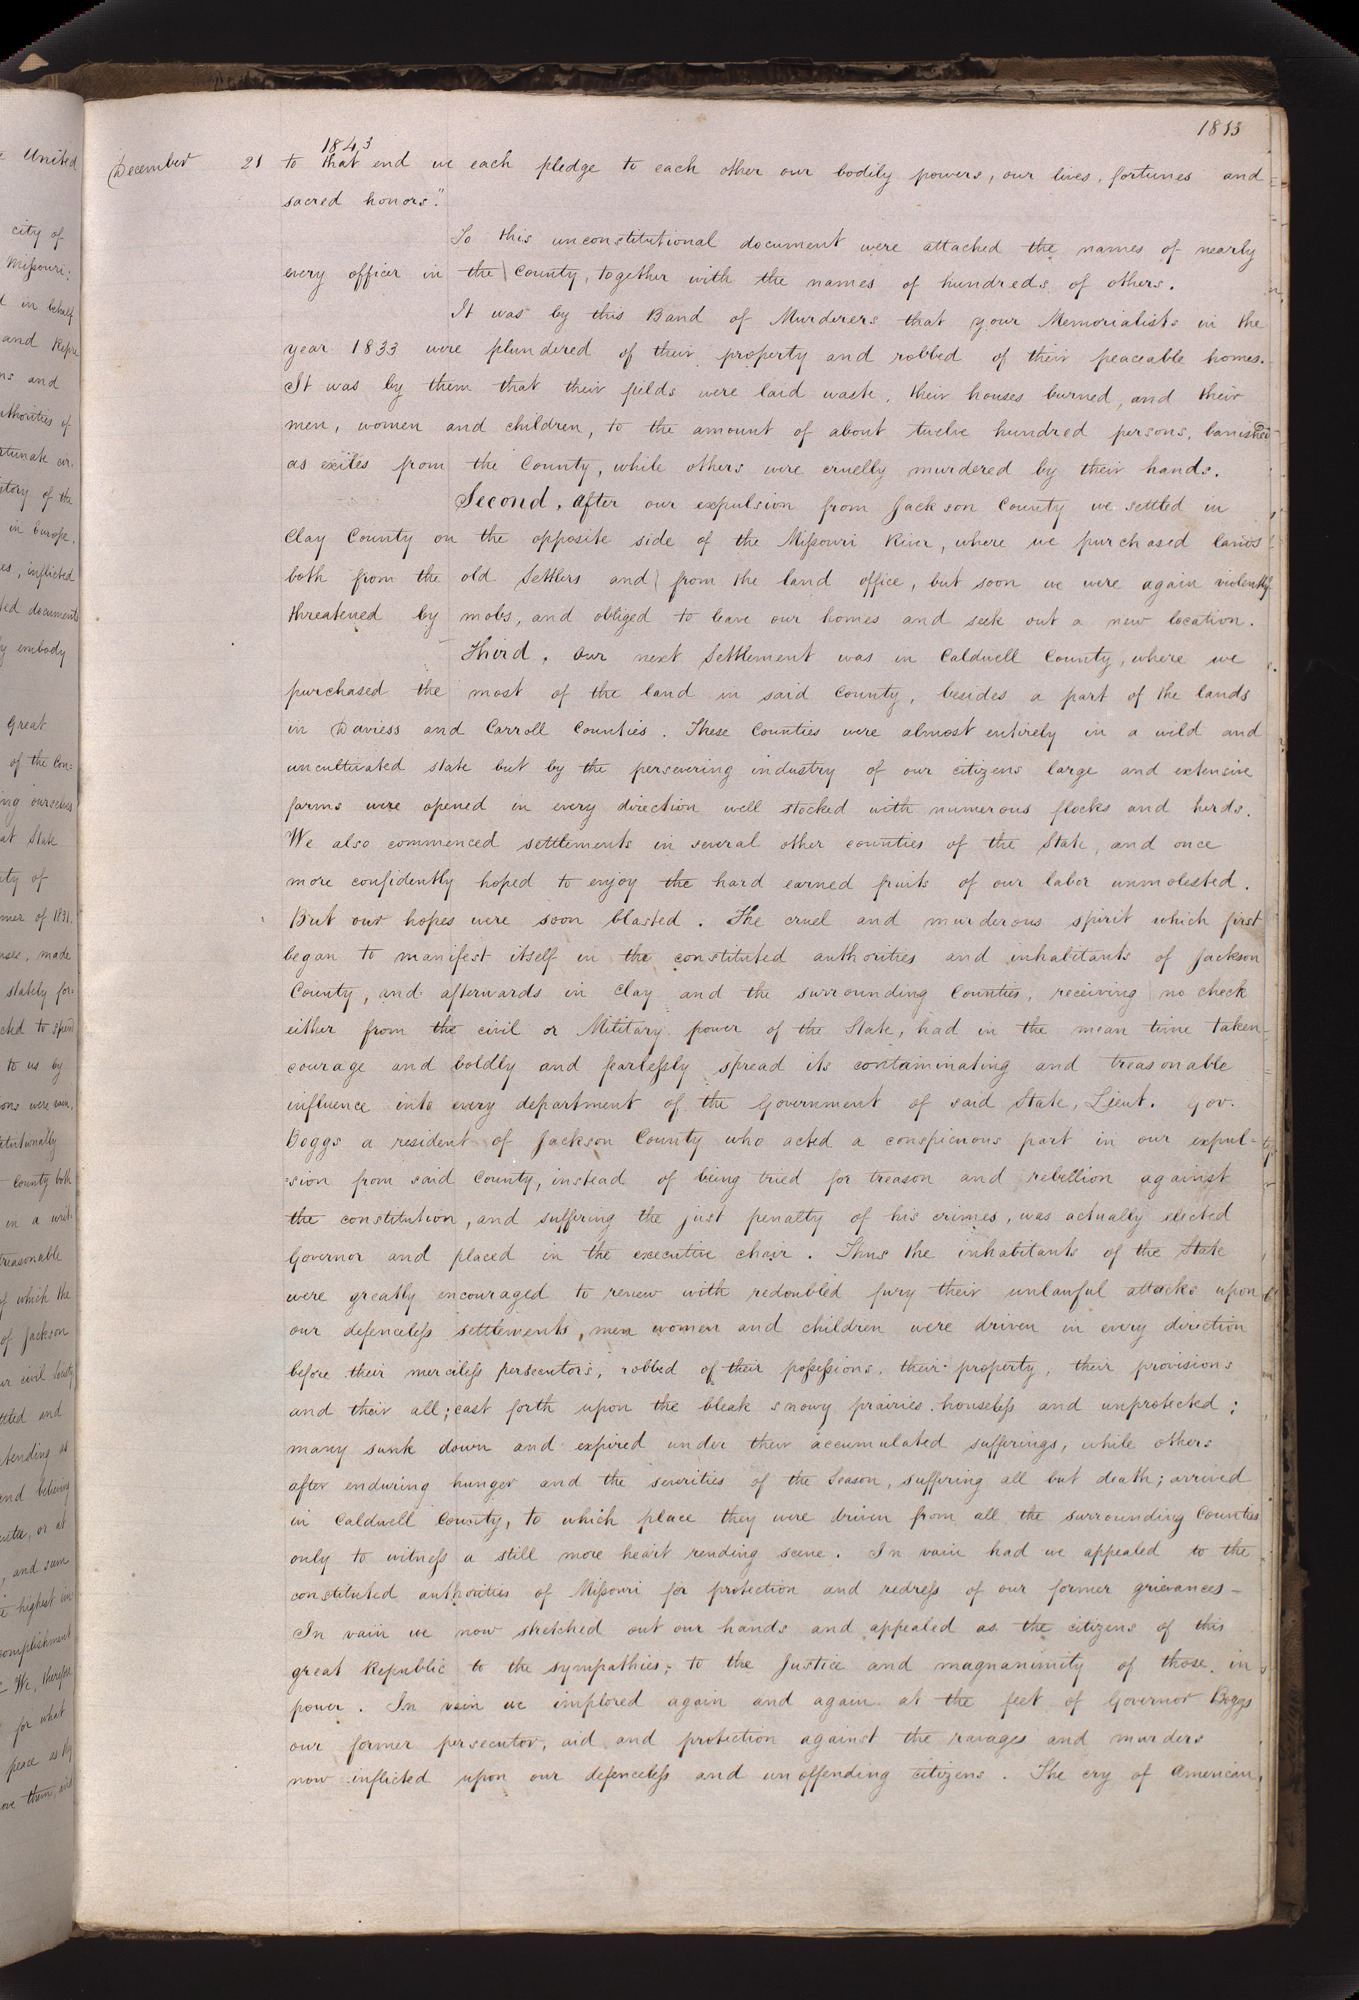 1843
1813
December 21 to that end we each pledge to each other our bodily powers, our lives, fortunes and
sacred honors."
To this unconstitutional document were attached the names of nearly
every officer in the County, together with the names of hundreds of others.
It was by this Band of Murderers that your Memorialists in the
year 1833 were plundered of their property and robbed of their peaceable homes.
It was by them that their fields were laid waste, their houses burned, and their
men, women and children, to the amount of about twelve hundred persons, banished
as exiles from the County, while others were cruelly murdered by their hands.
Second. After our expulsion from Jackson County we settled in
Clay County on the opposite side of the Missouri River, where we purchased lands
both from the old Settlers and from the land office, but soon we were again violently
threatened by mobs, and obliged to leave our homes and seek out a new location.
Third. Our next Settlement was in Caldwell County, where we
purchased the most of the land in said County, besides a part of the lands
in Daviess and Carroll Counties. These Counties were almost entirely in a wild and
uncultivated state but by the persevering industry of our citizens large and extensive
farms were opened in every direction well stocked with numerous flocks and herds.
We also commenced settlements in several other counties of the State, and once
more confidently hoped to enjoy the hard earned fruits of our labor unmolested.
But our hopes were soon blasted. The cruel and murderous spirit which first
began to manifest itself in the constituted authorities and inhabitants of Jackson
County, and afterwards in Clay and the surrounding Counties, receiving no check
either from the civil or Military power of the State, had in the mean time taken
courage and boldly and fearlessly spread its contaminating and treasonable
influence into every department of the Government of said State, Lieut. Gov.
Boggs a resident of Jackson County who acted a conspicuous part in our expul=
=sion from said County, instead of being tried for treason and rebellion against
the constitution, and suffering the just penalty of his crimes, was actually elected
Governor and placed in the executive chair. Thus the inhabitants of the State
were greatly encouraged to renew with redoubled fury their unlawful attacks upon
our defenceless settlements, men women and children were driven in every direction
before their merciless persecutors, robbed of their possessions, their property, their provisions
and their all; cast forth upon the bleak snowy prairies houseless and unprotected;
many sunk down and expired under their accumulated sufferings, while others
after enduring hunger and the severities of the Season, suffering all but death; arrived
in Caldwell County, to which place they were driven from all the surrounding Counties
only to witness a still more heart rending scene. In vain had we appealed to the
constituted authorities of Missouri for protection and redress of our former grievances—
In vain we now stretched out our hands and appealed as the citizens of this
great Republic to the sympathies; to the Justice and magnanimity of those in
power. In vain we implored again and again at the feet of Governor Boggs
our former persecutor, aid and protection against the ravages and murders
now inflicted upon our defenceless and unoffending citizens. The cry of American